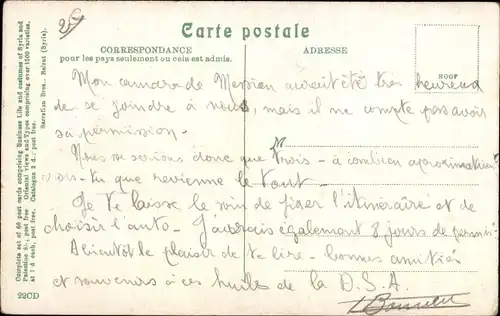 Carte postale
CORRESPONDANCE
pour les pays seulement ou cela est admis.
ADRESSE
Mon camarade Messien aurait été très heureux
de se joindre à nous, mais il ne compte pas avoir
sa permission.
Nous ne serions donc que trois - à combien aproximativement
vois-tu que revienne le tout -
Je te laisse le soin de fixer l'itinéraire et de
choisir l'auto - J'aurais également 8 jours de permis.
A bientôt le plaisir de te lire - bonnes amitiés
et souvenirs à ces huiles de la D.S.A.
Complete set of 60 post cards comprising Business Life and costumes of Syria and
Palestine post free Oriental views and Types comprising over 1500 varieties,
at 1 d each, post free. Catalogue 2 d. post free.
Sarrafian Bros., Beirut (Syria).
22CD